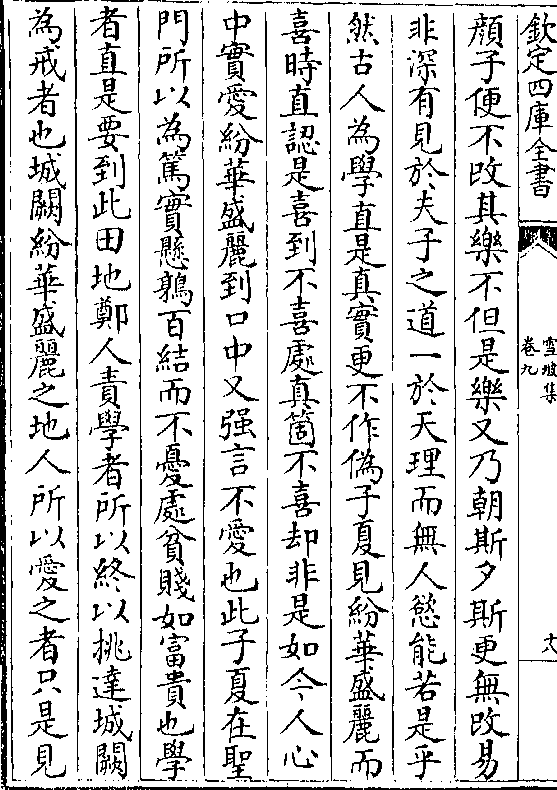 欽定四庫全書
雪坡集
卷九
十八
顔子便不改其樂不但是樂又乃朝斯夕斯更無改易
非深有見於夫子之道一於天理而無人慾能若是乎
然古人為學直是真實更不作偽子夏見紛華盛麗而
喜時直認是喜到不喜處真箇不喜却非是如今人心
中實愛紛華盛麗到口中又强言不愛也此子夏在聖
門所以為篤實懸鶉百結而不憂處貧賤如富貴也學
者直是要到此田地鄭人責學者所以終以挑達城闕
為戒者也城闕紛華盛麗之地人所以愛之者只是見